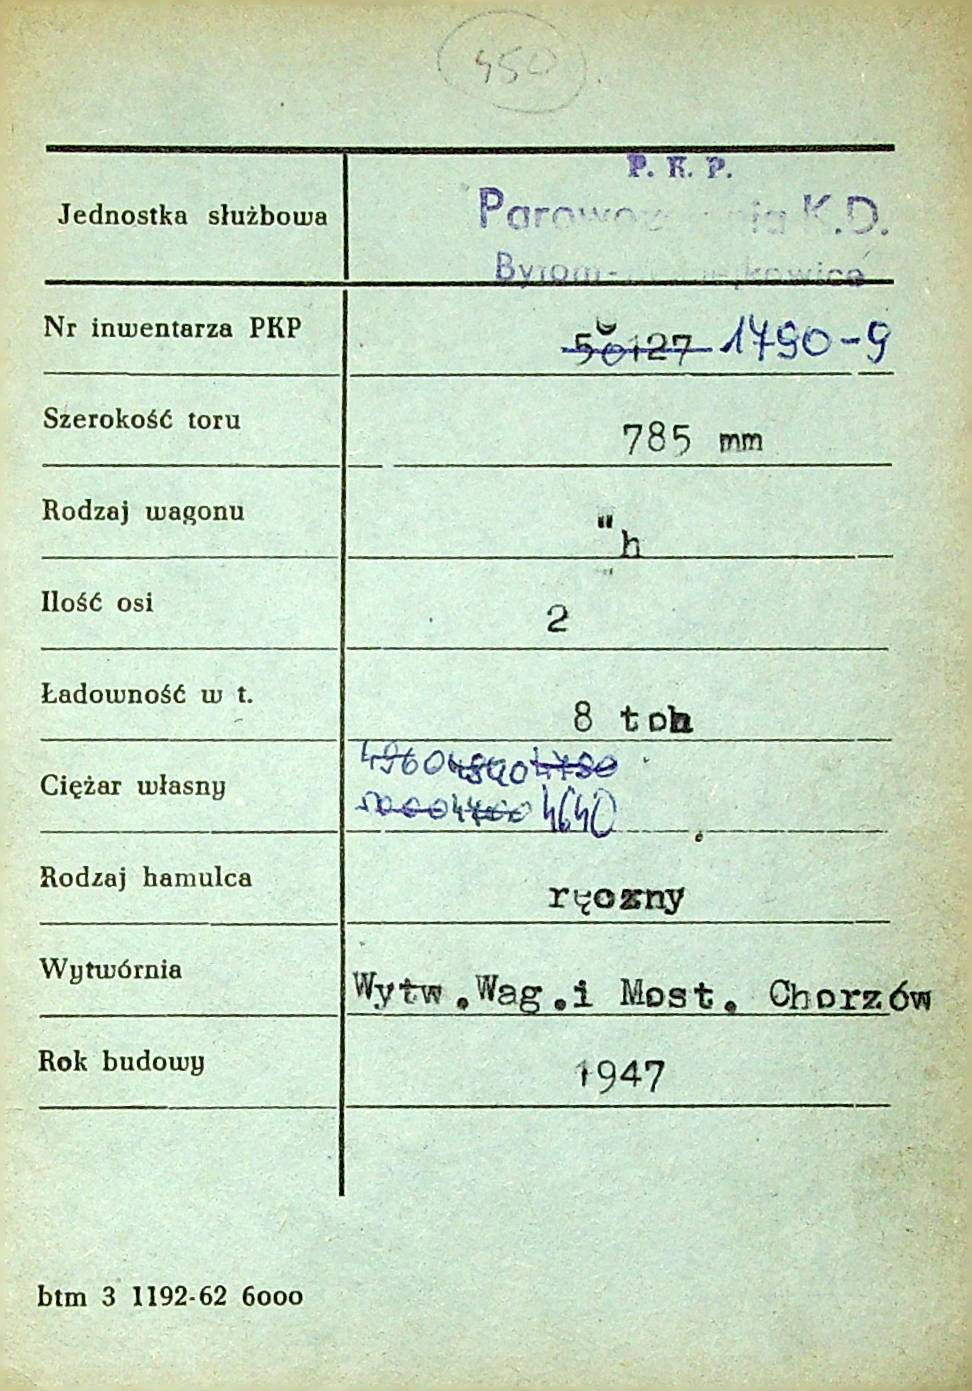 450
P. K. P.
Jednostka służbowa
K.D.
Bytom-
Nr inwentarza PKP 50127 1790-9
Szerokość toru 785 mm
Rodzaj wagonu "h
Ilość osi 2
Ładowność w t. 8 ton
4960 4840 4780
Ciężar własny
5000 4700 4640
Rodzaj hamulca ręczny
Wytwórnia Wytw.Wag.i Most. Chorzów
Rok budowy 1947
btm 3 1192-62 6000